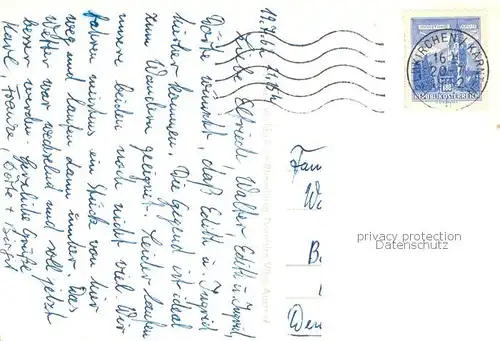 19.7.64 21.15h
Liebe Elfriede, Walter, Edith u. Ingrid,
Dörte wünscht, daß Edith u. Ingrid
hierher kommen. Die Gegend ist ideal
zum Wandern geeignet. Leider laufen
unsere beiden noch nicht viel. Wir
fahren meistens ein Stück von hier
weg und laufen dann immer. Das
Wetter war wechselnd und soll jetzt
besser werden. Herzliche Grüße
Karl Franz, Dörte + Birgit
KIRCHEN KÄRN
16.
20-
REPUBLIK ÖSTERREICH
Fam
W
B
Wen
privacy protection
Datenschutz